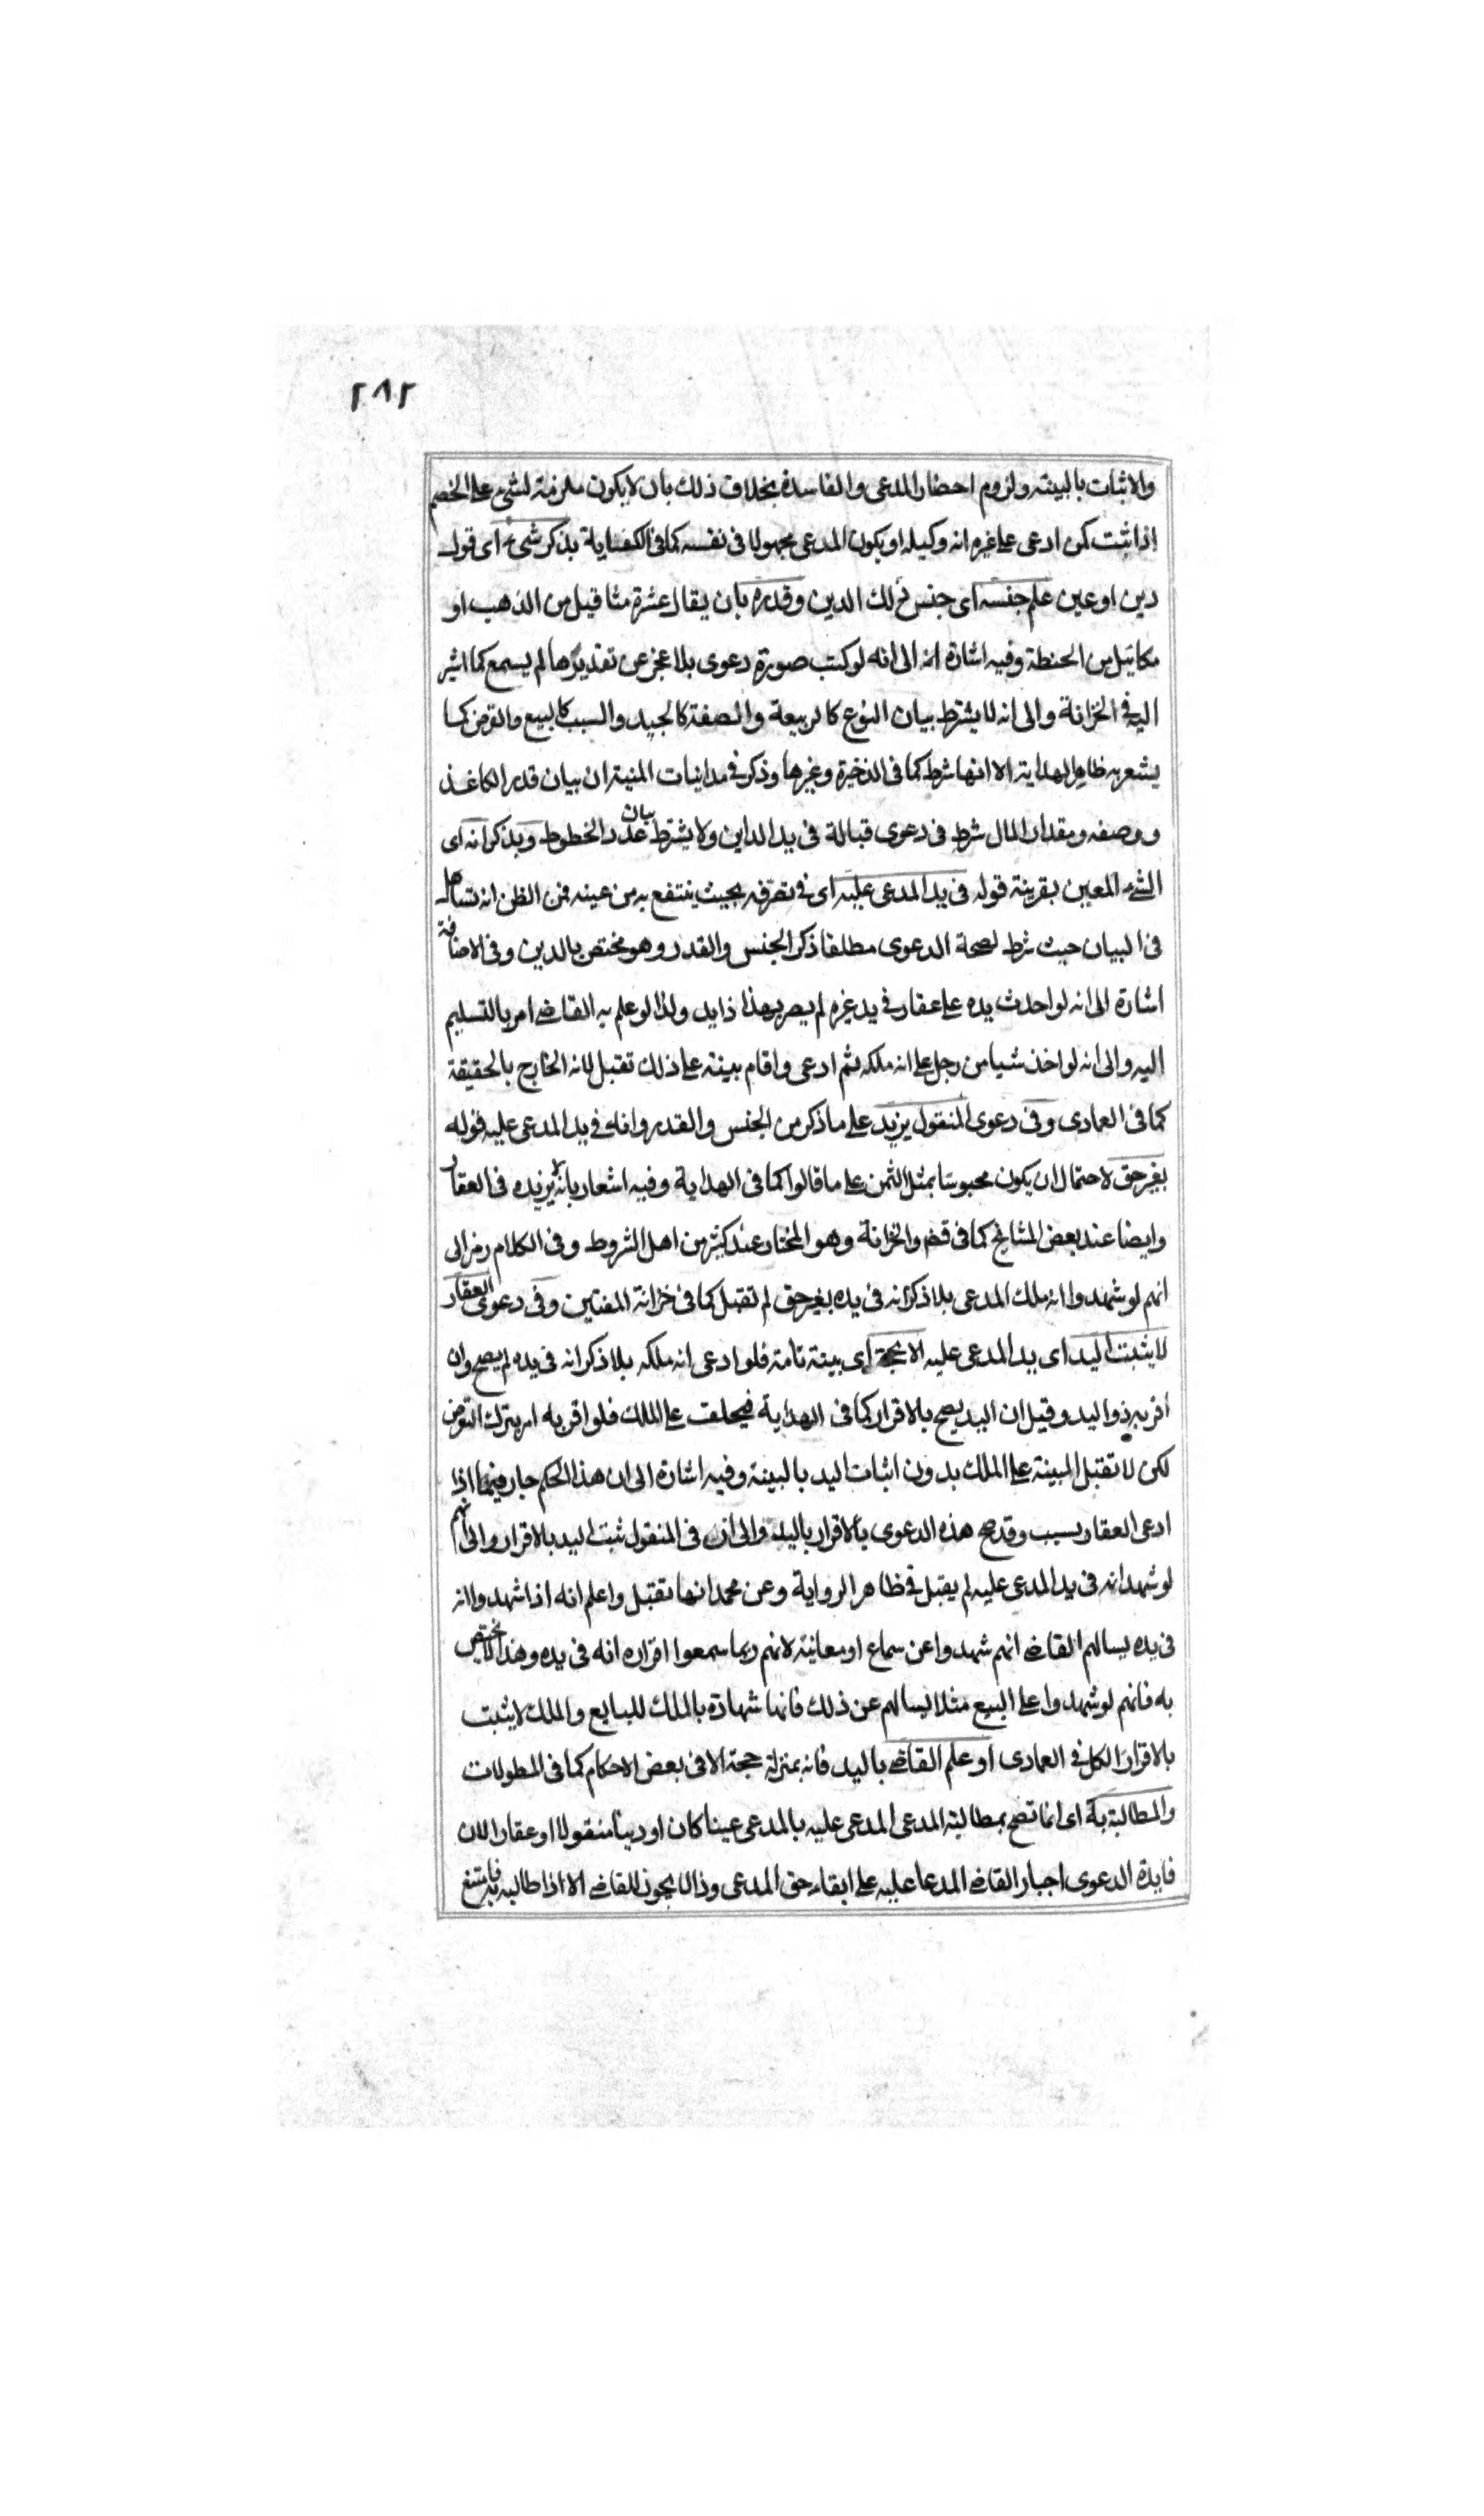 ٢٨٢
والاثبات بالبينة ولزوم احضار المدعى والفاسدة بخلاف ذلك بان لا يكون ملزمة لشئ على الخصم
اذا ثبت كمن ادعى على غيره انه وكيله او يكون المدعى مجهولا فى نفسه كما فى الكفاية بذكر شئ اى قول
دين او عين علم جنسه اى جنس ذلك الدين وقدره بان يقال عشرة مثاقيل من الذهب او
مكاييل من الحنطة وفيه اشارة انه الى انه لو كتب صورة دعوى بلا عجز عن تقديرها لم يسمع كما اشير
اليه فى الخزانة والى انه لا يشترط بيان النوع كالربيعة والصفة كالجيد والسبب كالبيع والقرض كما
يشعر به ظاهر الهداية الا انها شرط كما فى الذخيرة وغيرها وذكر فى مداينات المنية ان بيان قدر الكاغذ
ووصفه ومقدار المال شرط فى دعوى قبالة فى يد الداين ولا يشترط بيان عدد الخطوط وبذكر انه اى
الشئ المعين بقرينة قوله فى يد المدعى عليه اى فى تصرفه بحيث ينتفع به من عينه فمن الظن انه تساهل
فى البيان حيث شرط لصحة الدعوى مطلقا ذكر الجنس والقدر وهو مختص بالدين وفى الاضافة
اشارة الى انه لو احدث يده على عقار فى يد غيره لم يصر بهذا ذايد ولذا لو علم به القاضى امر بالتسليم
اليه والى انه لو اخذ شيا من رجل على انه ملكه ثم ادعى واقام بينة على ذلك تقبل لانه الخارج بالحقيقة
كما فى العمادى وفى دعوى المنقول يزيد على ما ذكر من الجنس والقدر وانه فى يد المدعى عليه قوله
بغير حق لاحتمال ان يكون محبوسا بمثل الثمن على ما قالوا كما فى الهداية وفيه اشعار بانه لا يزيده فى العقار
وايضا عند بعض المشايخ كما فى قضو الخزانة وهو المختار عند كثير من اهل الشروط وفى الكلام رمز الى
انهم لو شهدوا انه ملك المدعى بلا ذكر انه فى يده بغير حق لم تقبل كما فى خزانة المفتين وفى دعوى العقار
لا يثبت اليد اى يد المدعى عليه الا بحجة اى بينة تامة فلو ادعى انه ملكه بلا ذكر انه فى يده لم يصح وان
اقر به ذو اليد وقيل ان اليد يصح بالاقرار كما فى الهداية فيحلف على الملك فلو اقر به امر بترك التعرض
لكن لا تقبل البينة على الملك بدون اثبات اليد بالبينة وفيه اشارة الى ان هذا الحكم جار فيما اذا
ادعى العقار بسبب وقد صح هذه الدعوى بالاقرار باليد والى ان فى المنقول ثبت اليد بالاقرار والى انهم
لو شهد انه فى يد المدعى عليه لم يقبل فى ظاهر الرواية وعن محمد انها تقبل واعلم انه اذا شهدوا انه
فى يده يسالهم القاضى انهم شهدوا عن سماع او معاينة لانهم ربما سمعوا اقراره انه فى يده وهذا لا يختص
به فانهم لو شهدوا على البيع مثلا يسالهم عن ذلك فانها شهادة بالملك للبايع والملك لا يثبت
بالاقرار الكل فى العمادى او علم القاضى باليد فانه بمنزلة حجة الا فى بعض الاحكام كما فى المطولات
والمطالبة به اى انما تصح بمطالبة المدعى المدعى عليه بالمدعى عينا كان او دينا منقولا او عقارا لان
فايدة الدعوى اجبار القاضى المدعا عليه على ايفاء حق المدعى وذا لا يجوز للقاضى الا اذا طالبه به